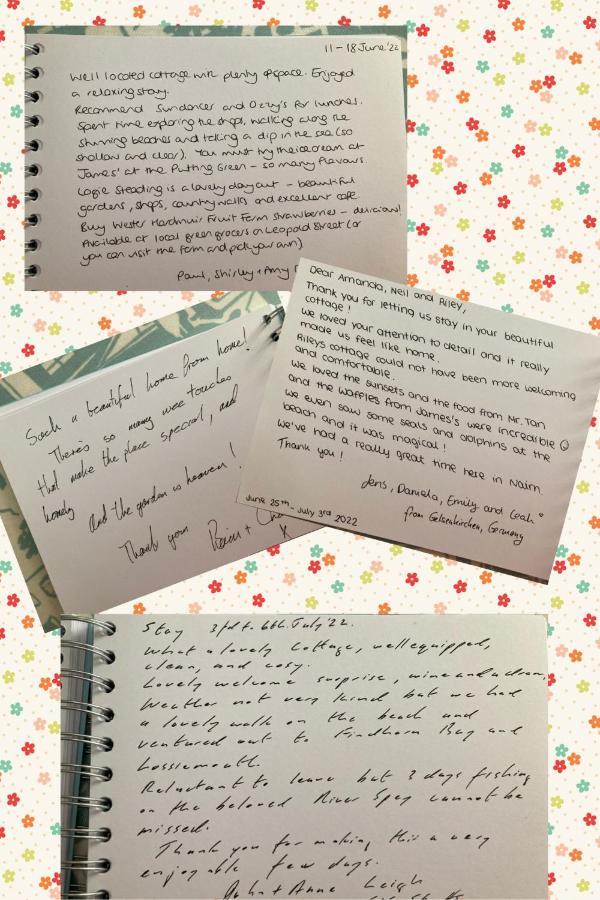 11 - 18 June '22
Well located cottage with plenty of space. Enjoyed
a relaxing stay.
Recommend Sundancer and Ozzy's for lunches.
Spent time exploring the shops, walking along the
stunning beaches and taking a dip in the sea (so
shallow and clear). You must try the icecream at
James' at the Putting Green - so many flavours.
Logie Steading is a lovely day out - beautiful
gardens, shops, country walks and excellent cafe
Buy Wester Hardmuir Fruit Farm strawberries - delicious!
Available at local green grocers on Leopold Street (or
you can visit the farm and pick your own)
Paul, Shirley + Amy
Such a beautiful home from home!
There's so many wee touches
that make the place special, and
homely
and the garden is heaven!
Thank you
x
Dear Amanda, Neil and Riley,
Thank you for letting us stay in your beautiful
cottage!
We loved your attention to detail and it really
made us feel like home.
Rileys cottage could not have been more welcoming
and comfortable.
We loved the sunsets and the food from Mr. Tan
and the waffles from James's were incredible ☺
We even saw some seals and dolphins at the
beach and it was magical!
We've had a really great time here in Nairn.
Thank you!
Jens, Daniela, Emily and Leah
from Gelsenkirchen, Germany
June 25th - July 3rd 2022
Stay 3rd to 6th July '22.
What a lovely cottage, well equipped,
clean, and cosy.
Lovely welcome surprise, wine and a dram,
Weather not very kind but we had
a lovely walk on the beach and
ventured out to Findhorn Bay and
Lossiemouth.
Reluctant to leave but 3 days fishing
on the beloved River Spey cannot be
missed.
Thank you for making this a very
enjoyable few days.
John + Anne Leigh